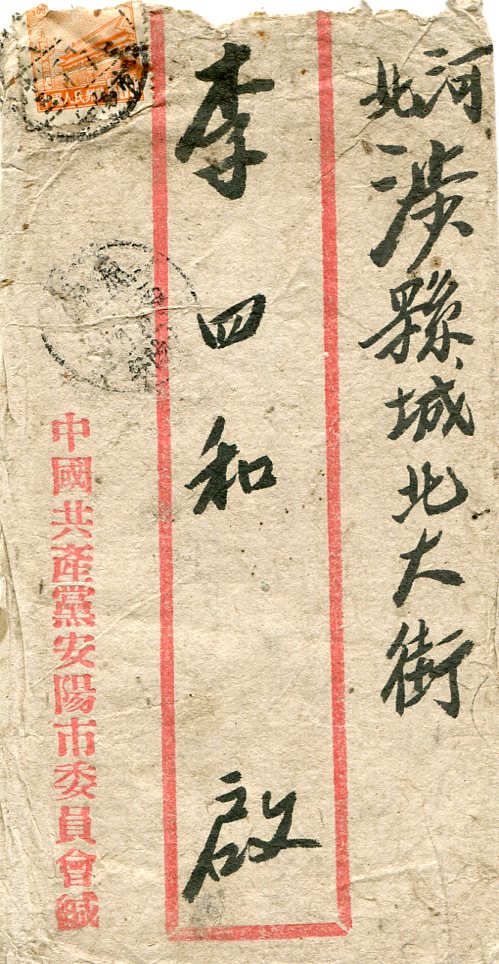 河北
涉縣城北大街
李四和 啟
中國共產黨安陽市委員會緘